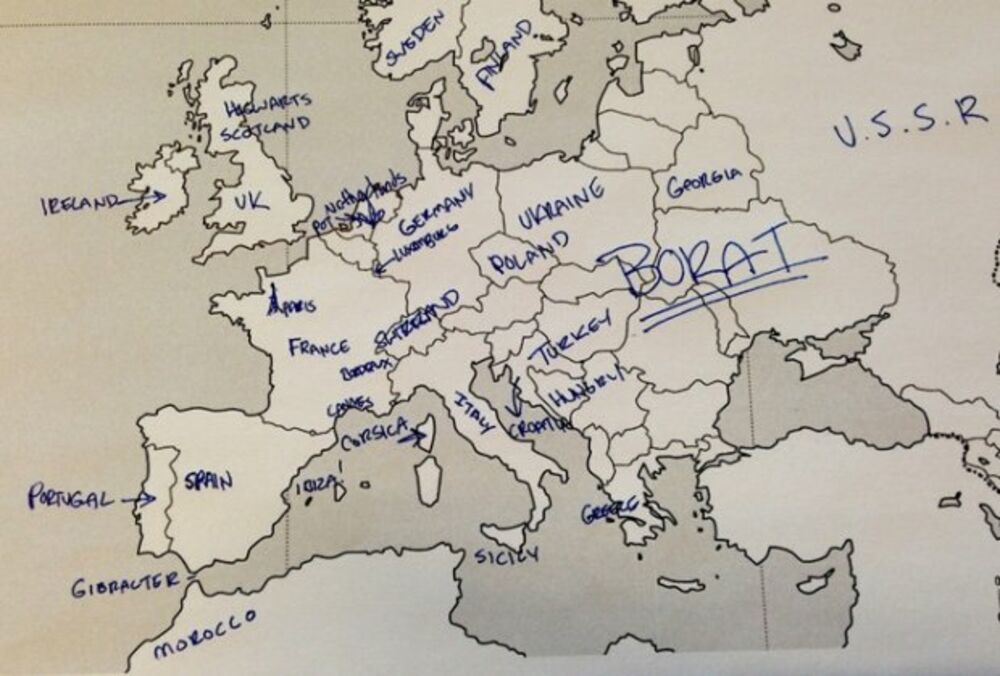 SWEDEN
FINLAND
HOGWARTS
SCOTLAND
U.S.S.R
IRELAND
UK
Netherlands
POT
GERMANY
LUXEMBURG
UKRAINE
GEORGIA
POLAND
BORAT
PARIS
FRANCE
TURKEY
BORDEUX
HUNGRLY
CANNES
CORSICA
ITALY
CROATIA
PORTUGAL
SPAIN
IBIZA!
GREECE
SICILY
GIBRALTER
MOROCCO